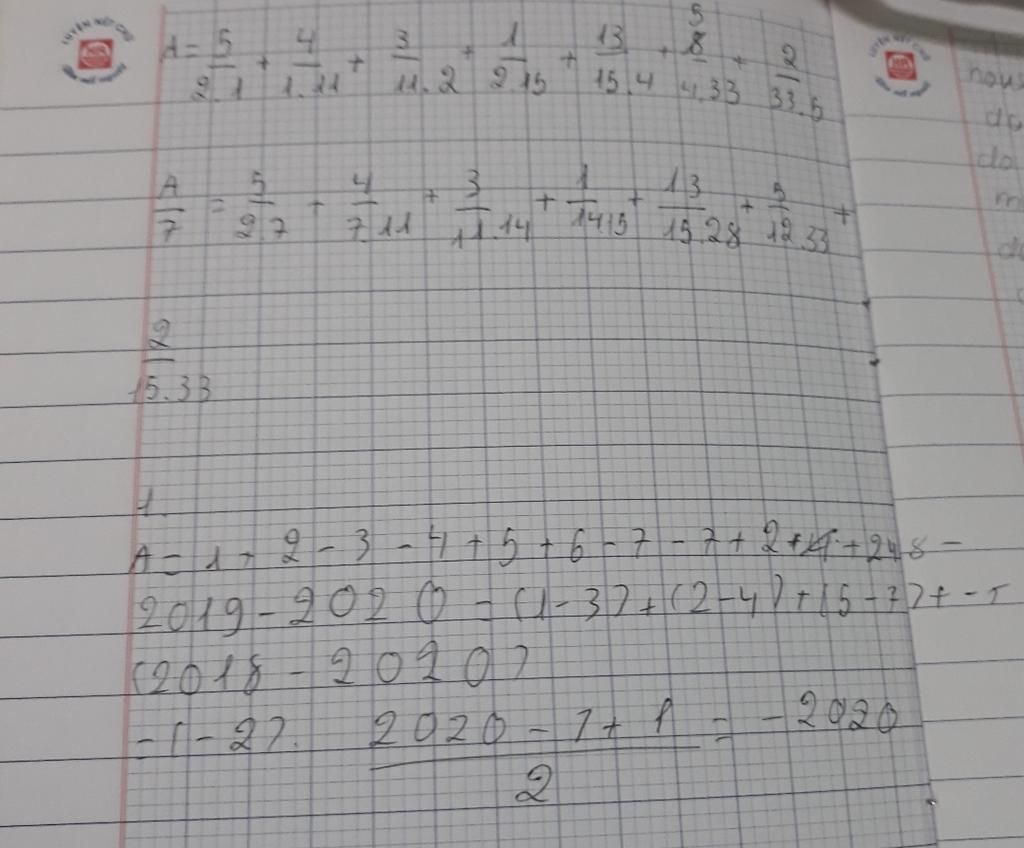 LUYỆN NÉT CHỮ
A = 5/2.1 + 4/1.11 + 3/11.2 + 1/2.15 + 13/15.4 + 5/8/4.33 + 2/33.5
A/7 = 5/2.7 + 4/7.11 + 3/11.14 + 1/14.15 + 13/15.28 + 5/12.33 +
2/15.33
1.
A = 1 + 2 - 3 - 4 + 5 + 6 - 7 - 7 + 2 + + 2 8 -
2019 - 2020 = (1-3) + (2-4) + (5-7) +
(2018 - 2020)
= (-2). 2020 - 1 + 1 / 2 = -2020